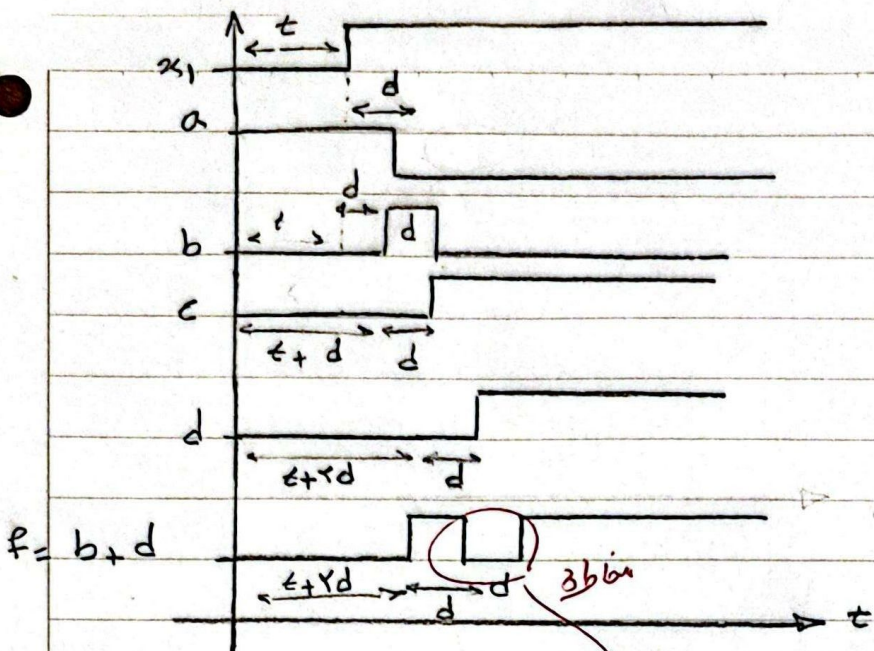 t
x₁
d
a
d
t
d
b
c
t + d
d
d
t+۲d
d
f = b + d
t+۲d
d
d
t